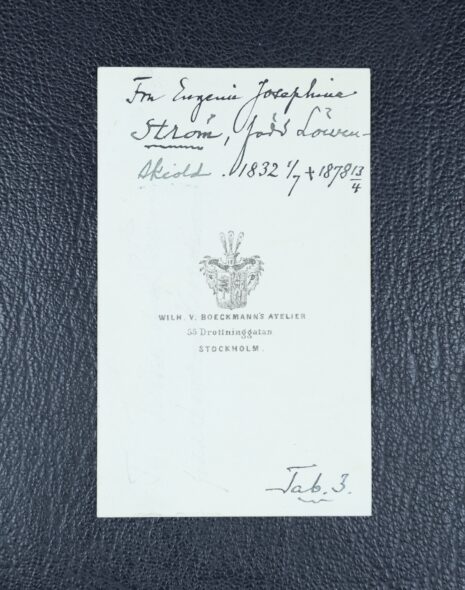 Fru Eugenie Josephine
Ström, född Löwen-
skiold. 1832 1/7 + 1878 13/4
WILH. V. BOECKMANN'S ATELIER
55 Drottninggatan
STOCKHOLM.
Tab. 3.